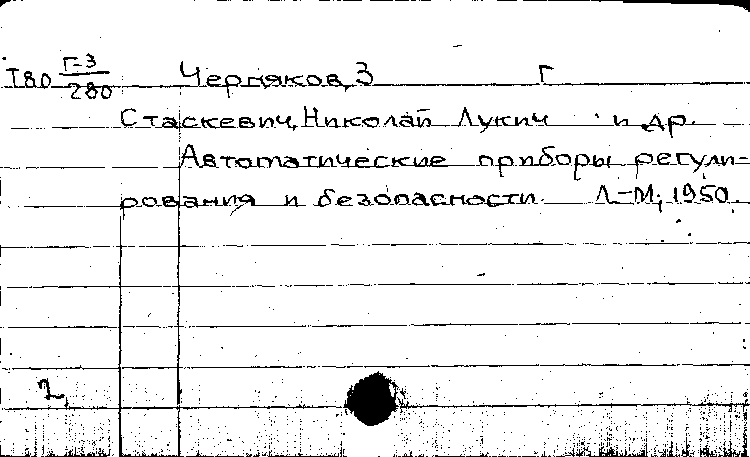 Т80 Г-3/280 Черняков, З Г
Стаскевич, Николай Лукич и др.
Автоматические приборы регули-
рования и безопасности. Л.-М., 1950.
2